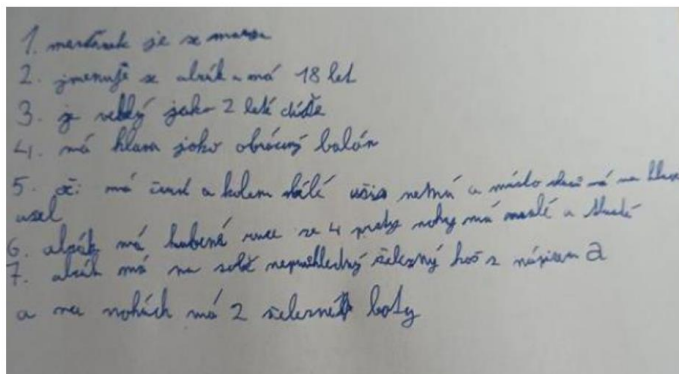 1. mesťánek je z marsu
2. jmenuje se alrik a má 18 let
3. je velký jako 2 leté dítě
4. má hlavu jako obrácený balón
5. oči má černé a kolem bílé uši nemá a místo má na hlavě
uzel
6. alrik má hubené ruce se 4 prsty nohy má malé a tlusté
7. alrik má na sobě neprůhledný železný koš s nápisem a
a na nohách má 2 železné boty